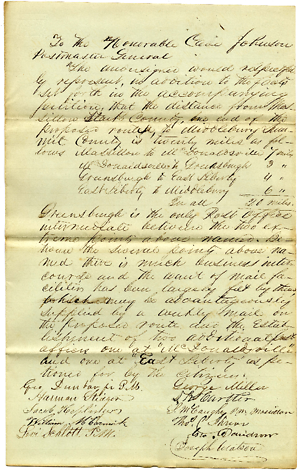 To the Honorable Cave Johnson
Postmaster General
The undersigned would respectfully
represent, in addition to the facts
set forth in the accompanying
petition, that the distance from Mas
sillon Stark County, one end of the
proposed route, to Middlebury Sum
mit County is twenty miles as fol
lows Massillon to McDonaldsville 7 miles
McDonaldsville to Greensburgh 3 "
Greensburgh to East Liberty 4 "
East Liberty to Middlebury 6 "
In all 20 miles.
Greensburgh is the only Post Office
intermediate between the two ex
treme points above named. Be
tween the several points above na
med there is much business inter
course and the want of mail fa
cilities has been largely felt by them
which may be advantageously
supplied by a weekly mail on
the proposed route and the Estab
lishment of two additional post
offices one at McDonaldsville
and one at East Liberty as pe
tioned for by the citizens.
Geo Dunbar Jr P.M.
George Miller
William McCormick
Thos.
Davidson
Joseph Watson